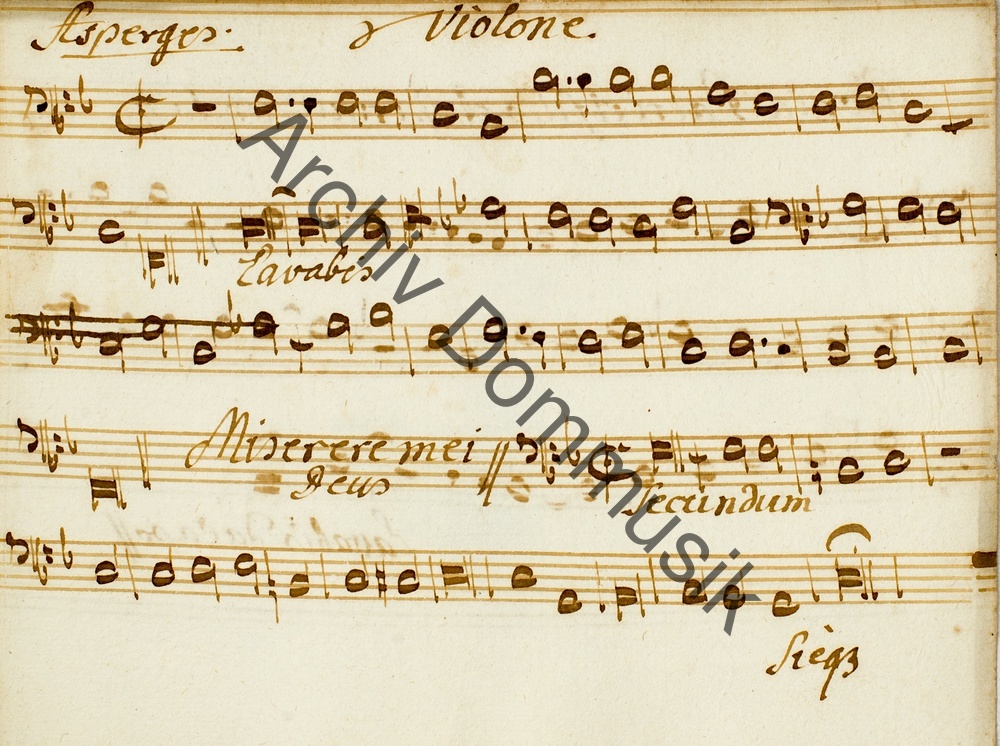 Asperges. Violone.
Lavabis
Miserere mei
Deus
Secundum
Archiv Dommusik